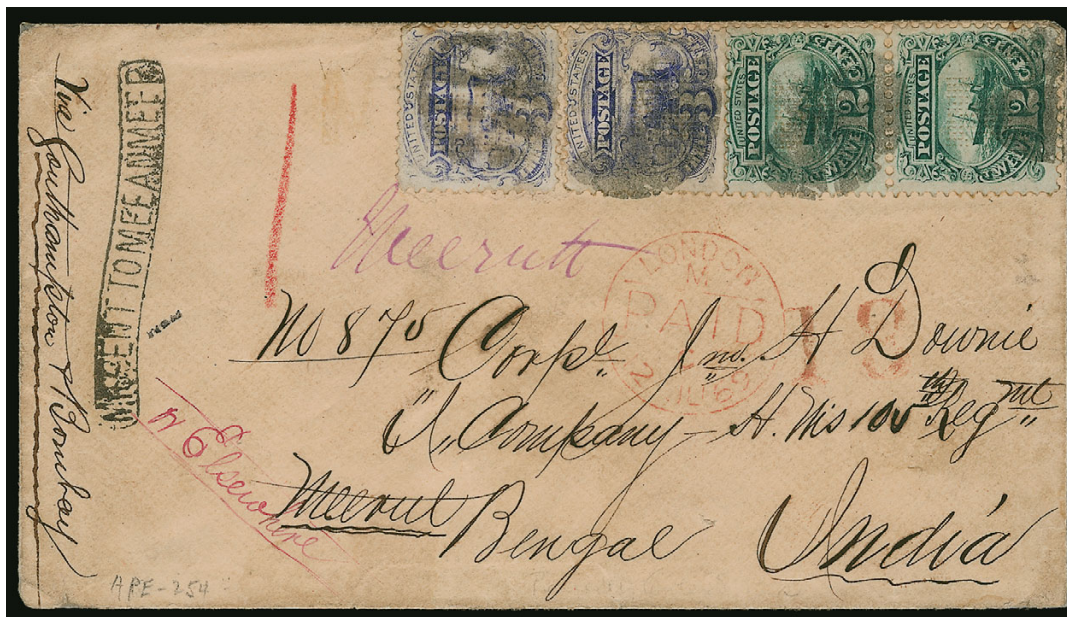 Via Southampton & Bombay
MISSENT TO MEEANMEER
UNITED STATES
POSTAGE
3
UNITED STATES
POSTAGE
3
UNITED STATES
POSTAGE
TWELVE
12
CENTS
UNITED STATES
POSTAGE
TWELVE
12
CENTS
Meerutt
LONDON
M
PAID
2 JU 69
No 875 Corpl. Jno. H Downie
Company H. Ms 105th Regmt
or Elsewhere
Meerut Bengal India
APE-254